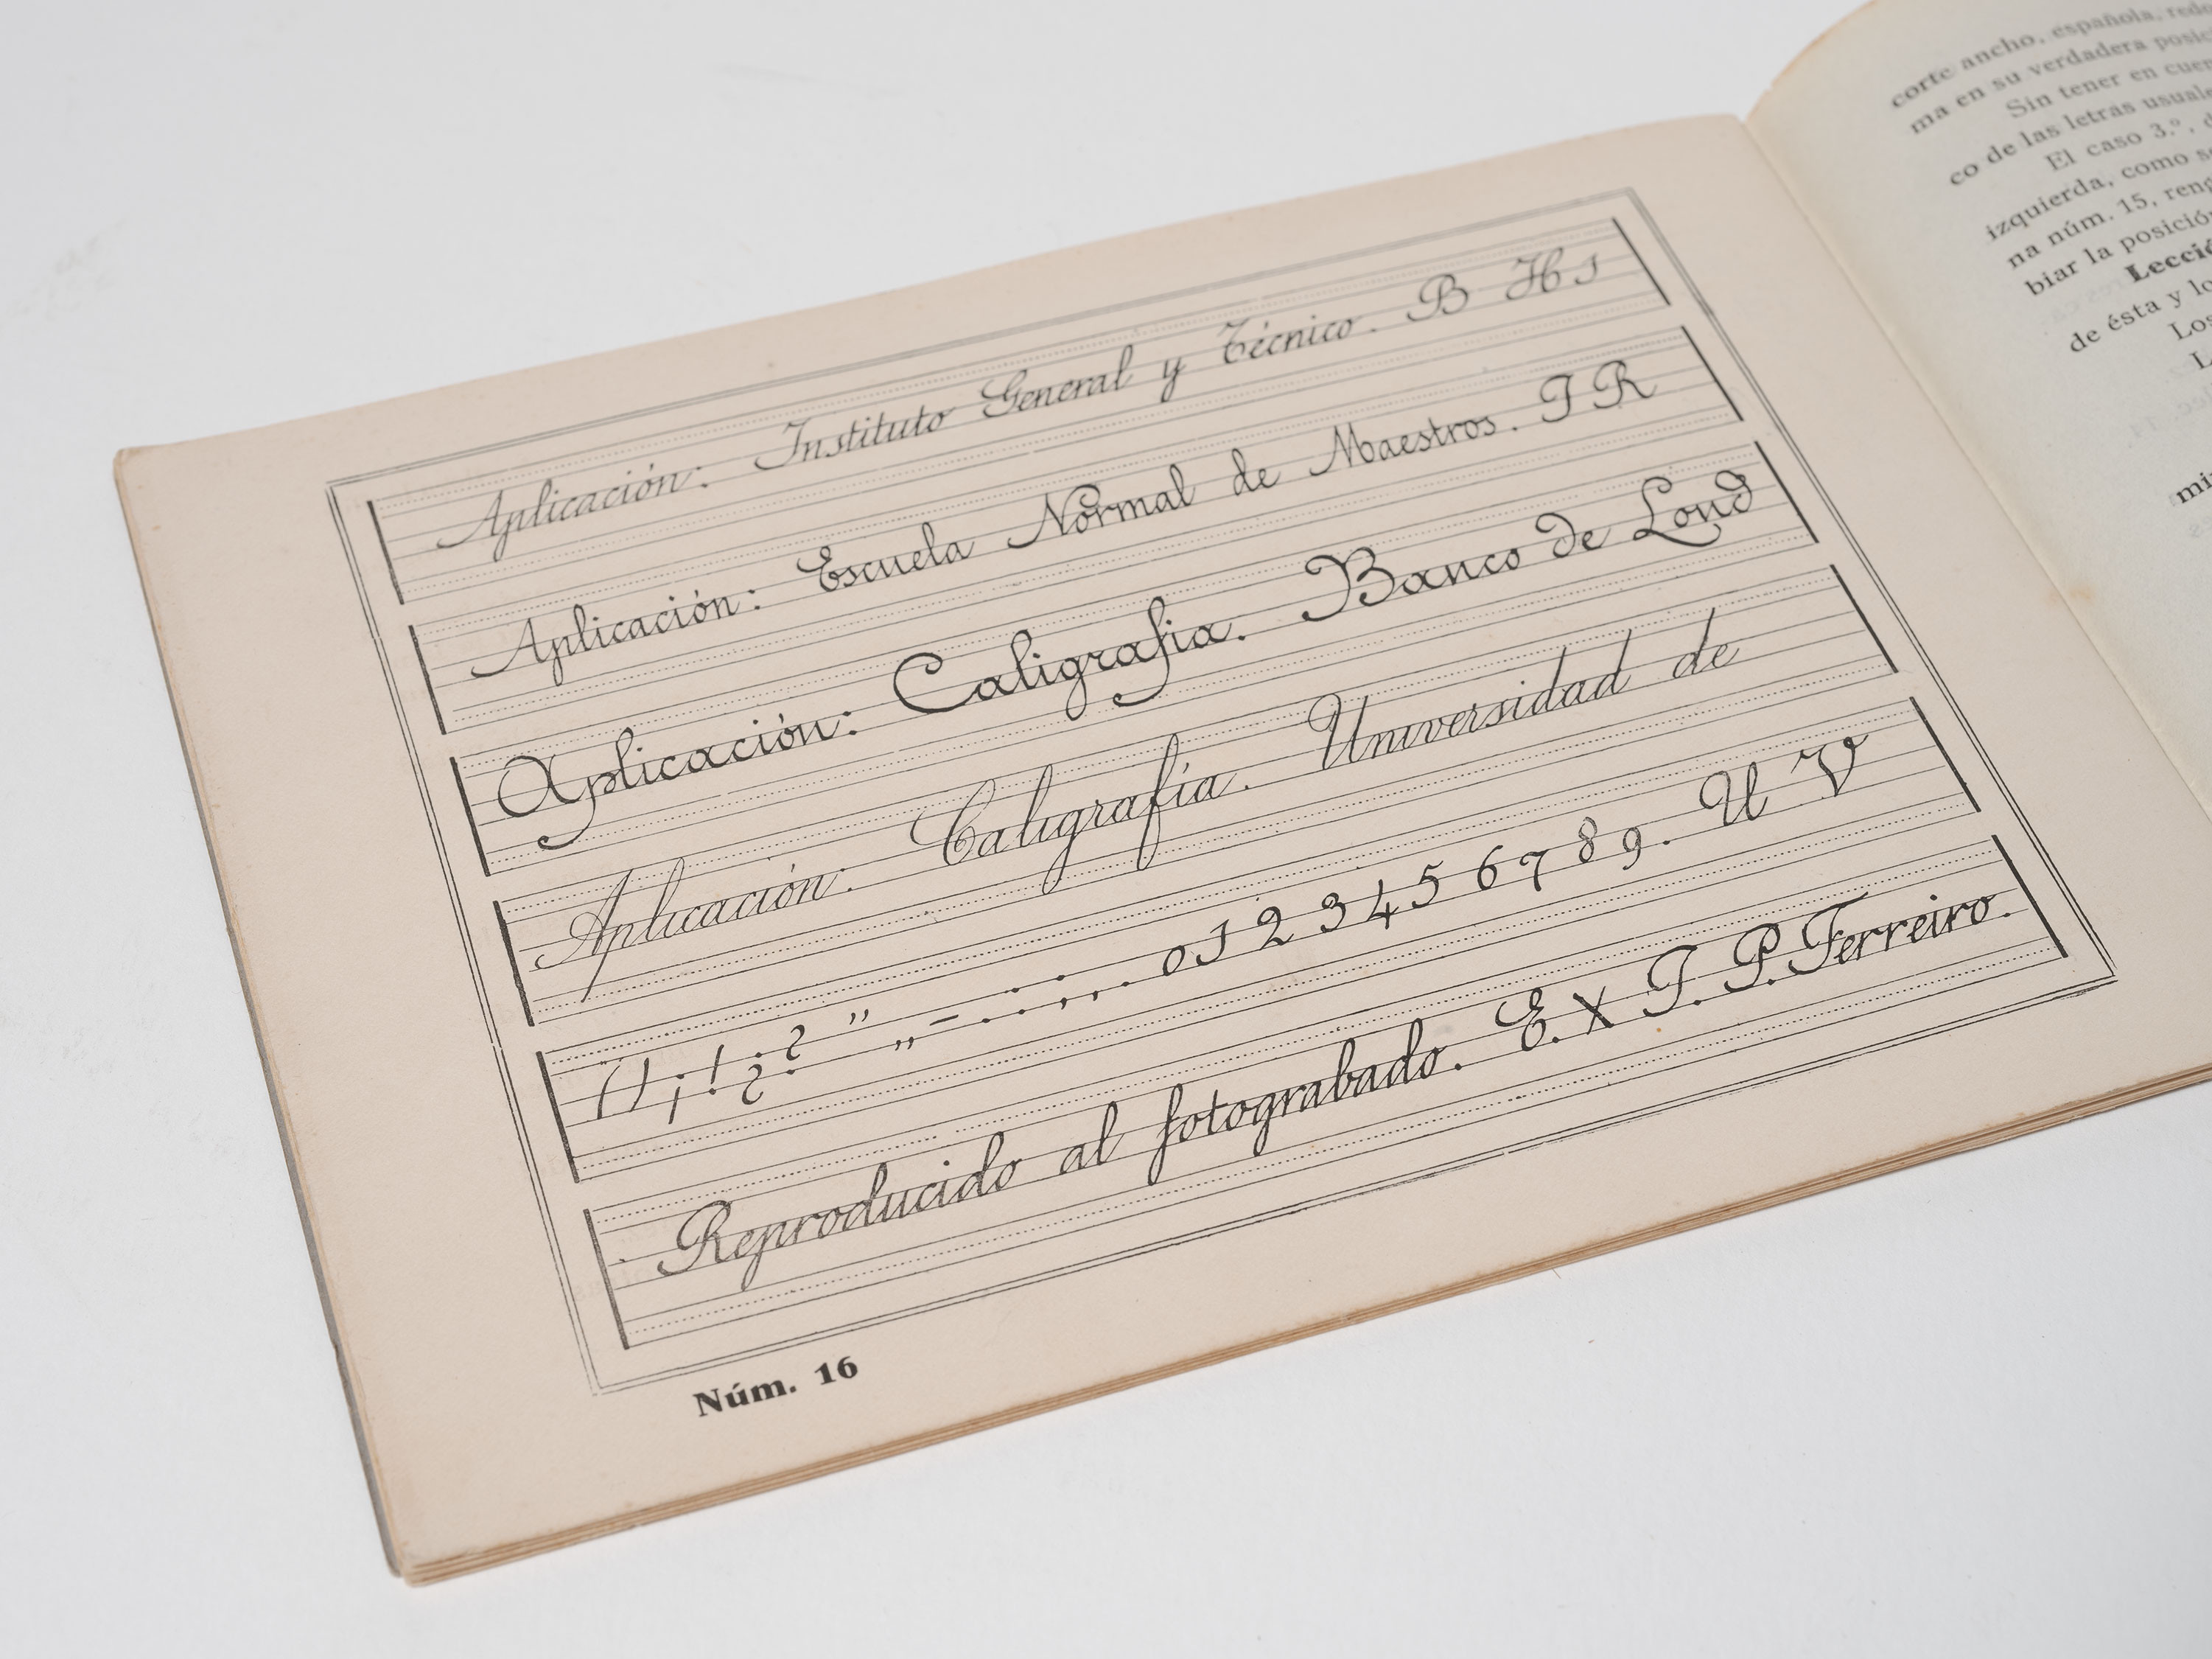 Aplicación: Instituto General y Técnico. B H s
Aplicación: Escuela Normal de Maestros. I R
Aplicación: Caligrafia. Banco de Lond
Aplicación: Caligrafía. Universidad de
( ) ¡ ! ¿ ? " „ = . : ; , . 0 1 2 3 4 5 6 7 8 9. U V
Reproducido al fotograbado. E. X J. P. Ferreiro.
Núm. 16
corte ancho, española, redo
ma en su verdadera posic
Sin tener en cuen
co de las letras usuale
El caso 3.º, d
izquierda, como se
na núm. 15, reng
biar la posición
Lecció
de ésta y lo
Los
L
mi